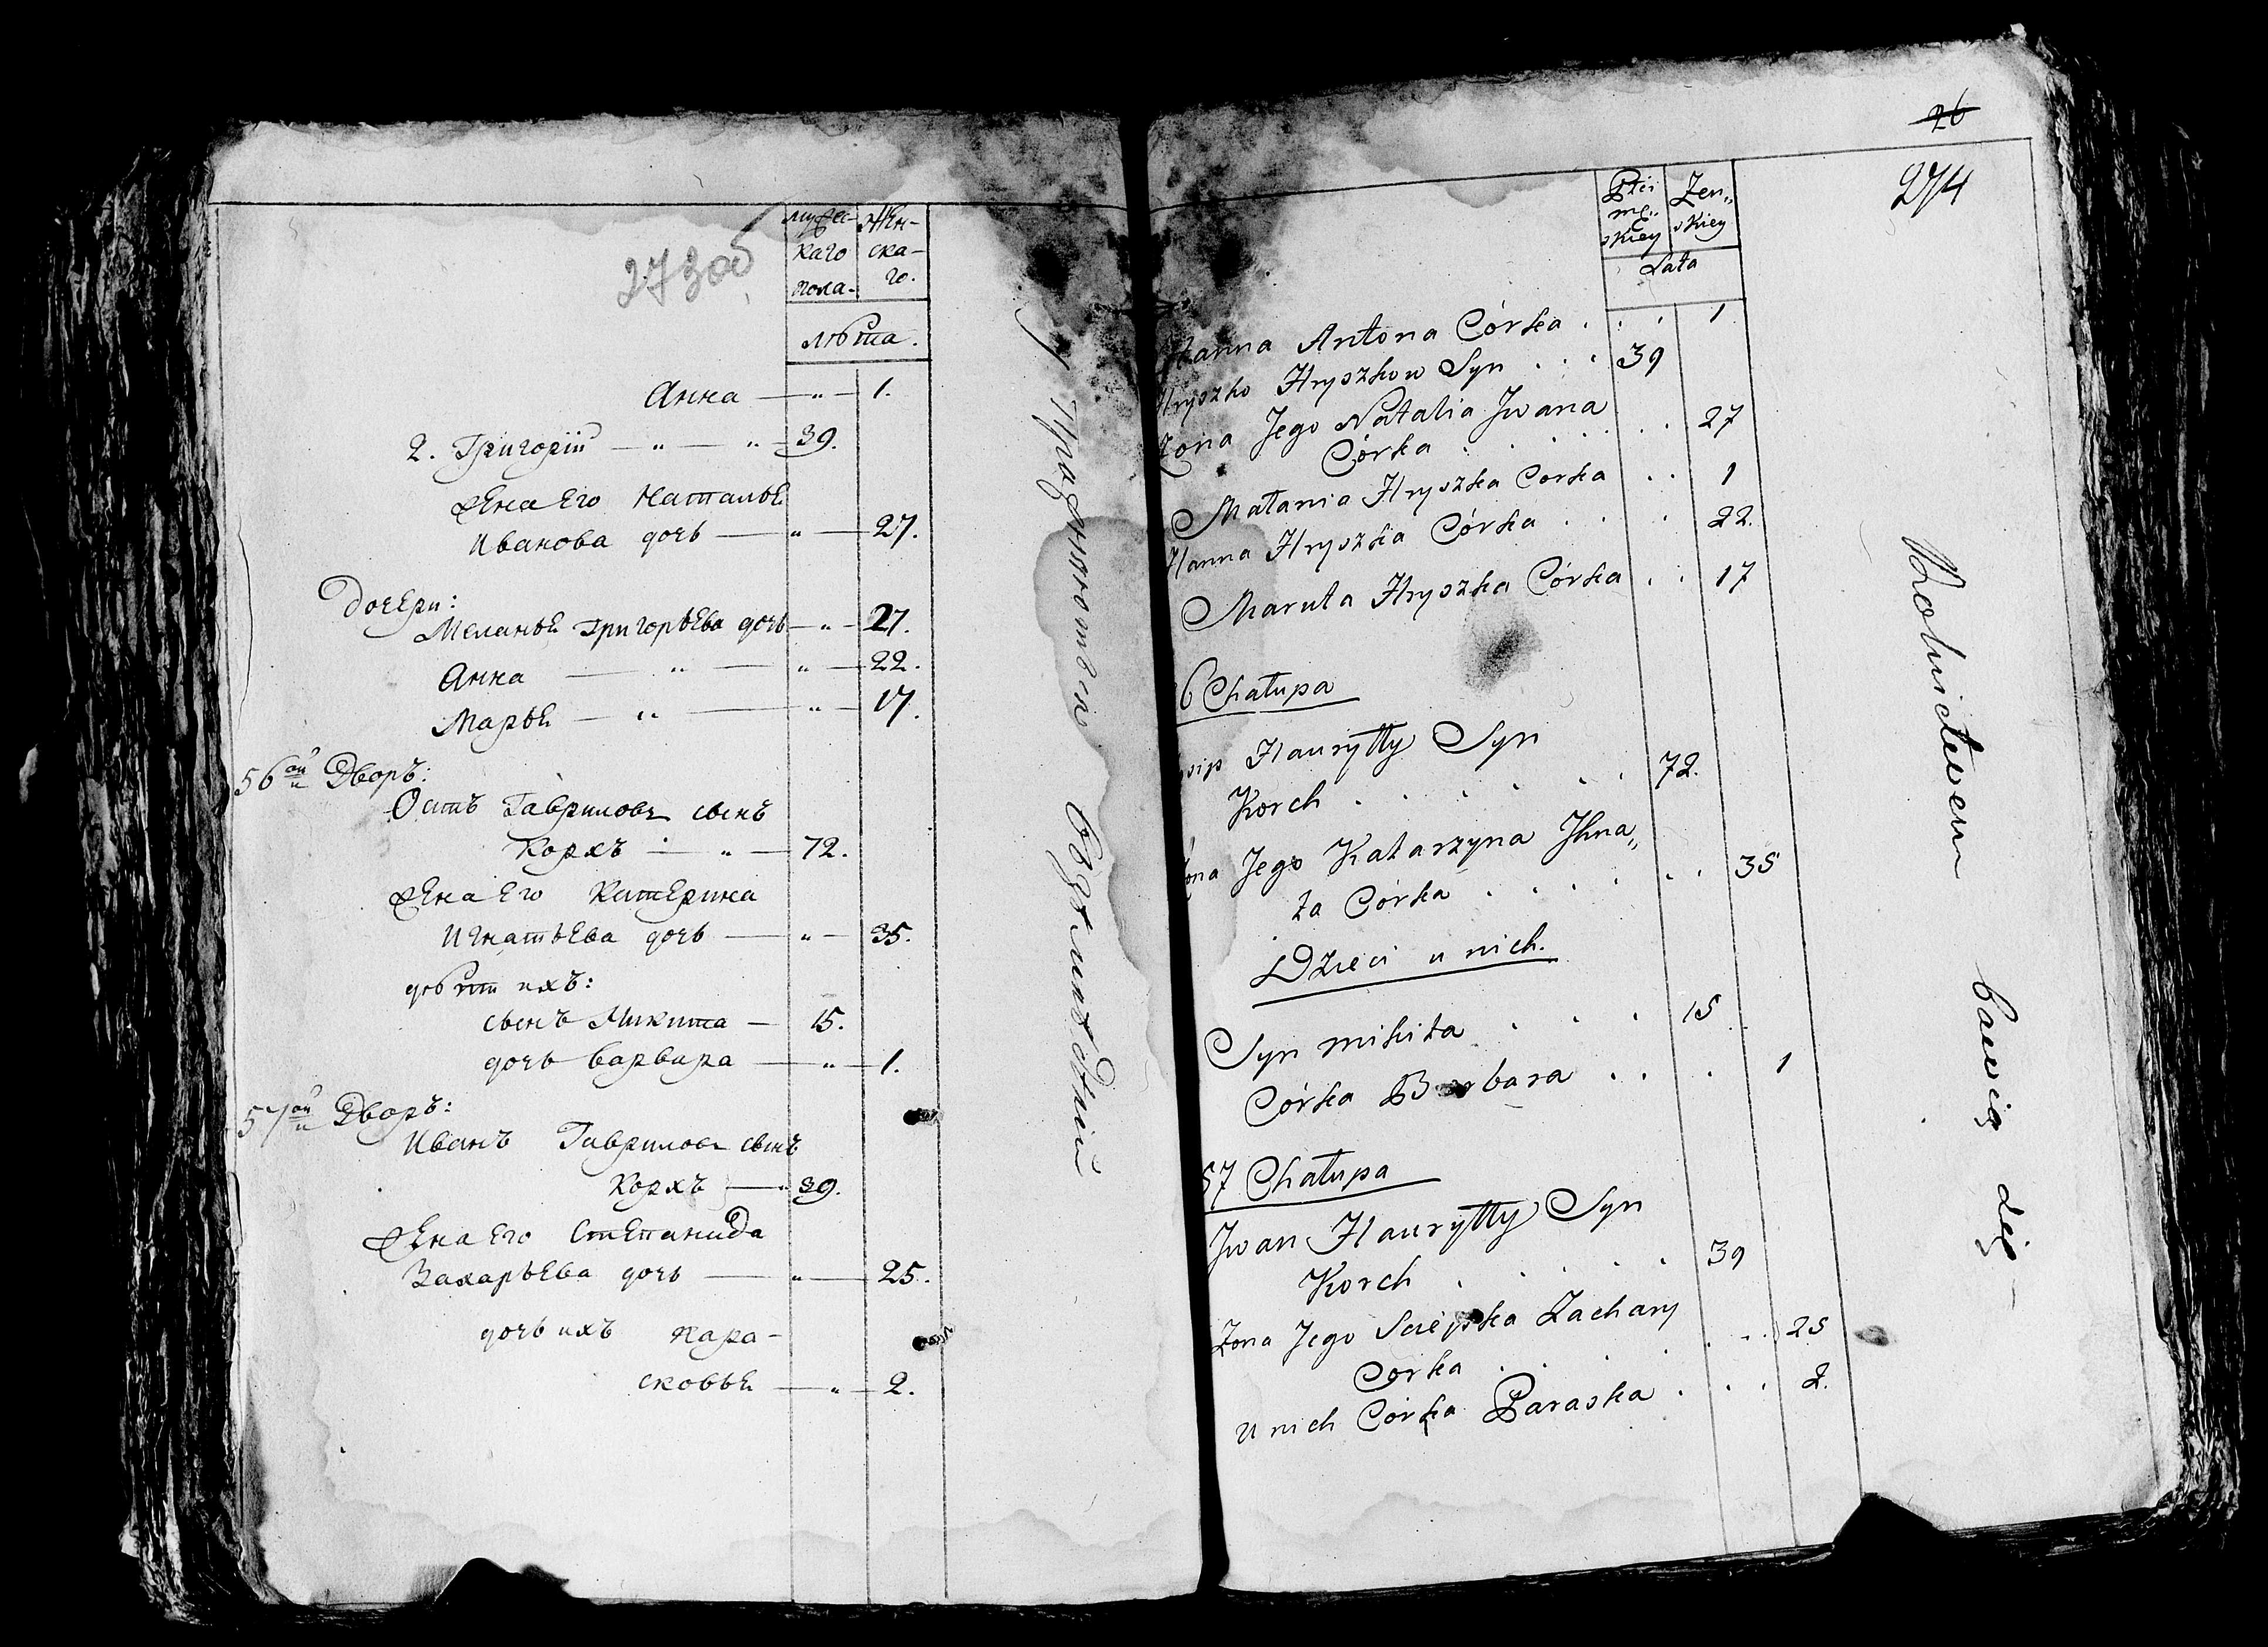 273 об
мужес-
каго
пола.
Жен-
ска-
го.
лѣта.
Анна — „ — 1.
2. Григорiй — „ — „ — 39.
жена Его Наталья
Иванова дочь — „ — 27.
Дочери:
Меланья Григорьева дочь — „ — 27.
Анна — „ — „ — 22.
Марья — „ — „ — 17.
56ой Дворъ:
Осипъ Гавриловъ сынъ
Коржъ — „ — 72.
жена Его Катерина
Игнатьева дочь — „ — 35.
дѣти ихъ:
сынъ Микита — 15.
дочь Варвара — „ — 1.
57ой Дворъ:
Иванъ Гавриловъ сынъ
Коржъ — 39.
жена Его Степанида
Захарьева дочь — „ — 25.
дочь ихъ Пара-
сковья — „ — 2.
26
274
Płci
mę„
skiey
Żen„
skiey
Lata
Hanna Antona Córka . . . 1
Hryszko Hryszkow Syn . . . 39
Żona Jego Natalia Jwana
Córka . . . . . . 27
Małania Hryszka Corka . . 1
Hanna Hryszka Córka . . . 22.
Maruta Hryszka Córka . . 17
6 Chałupa
Hauryłły Syn
Korch . . . . . . 72.
Jego Katarzyna Jhna„
ta Córka . . . . . . 35
Dzieci u nich.
Syn mikita . . . 15
Córka Barbara . . . 1
57 Chałupa
Jwan Hauryłły Syn
Korch . . . . . 39
Żona Jego Sciepka Zachary
Corka . . . . . . 25
u nich Córka Paraska . . . 2.
bawią się